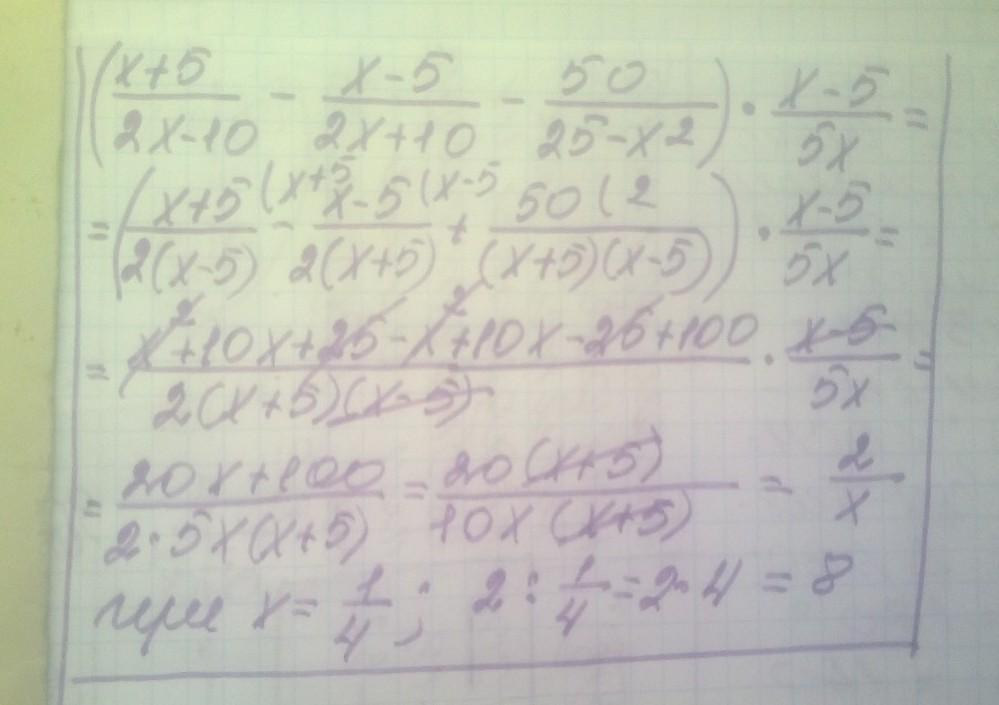 (x+5/2x-10 - x-5/2x+10 - 50/25-x²) · x-5/5x =
= (x+5(x+5/2(x-5) - x-5(x-5/2(x+5) + 50(2/(x+5)(x-5)) · x-5/5x =
= x²+10x+25-x²+10x-25+100/2(x+5)(x-5) · x-5/5x =
= 20x+100/2·5x(x+5) = 20(x+5)/10x(x+5) = 2/x
при x= 1/4; 2: 1/4 =2·4 = 8